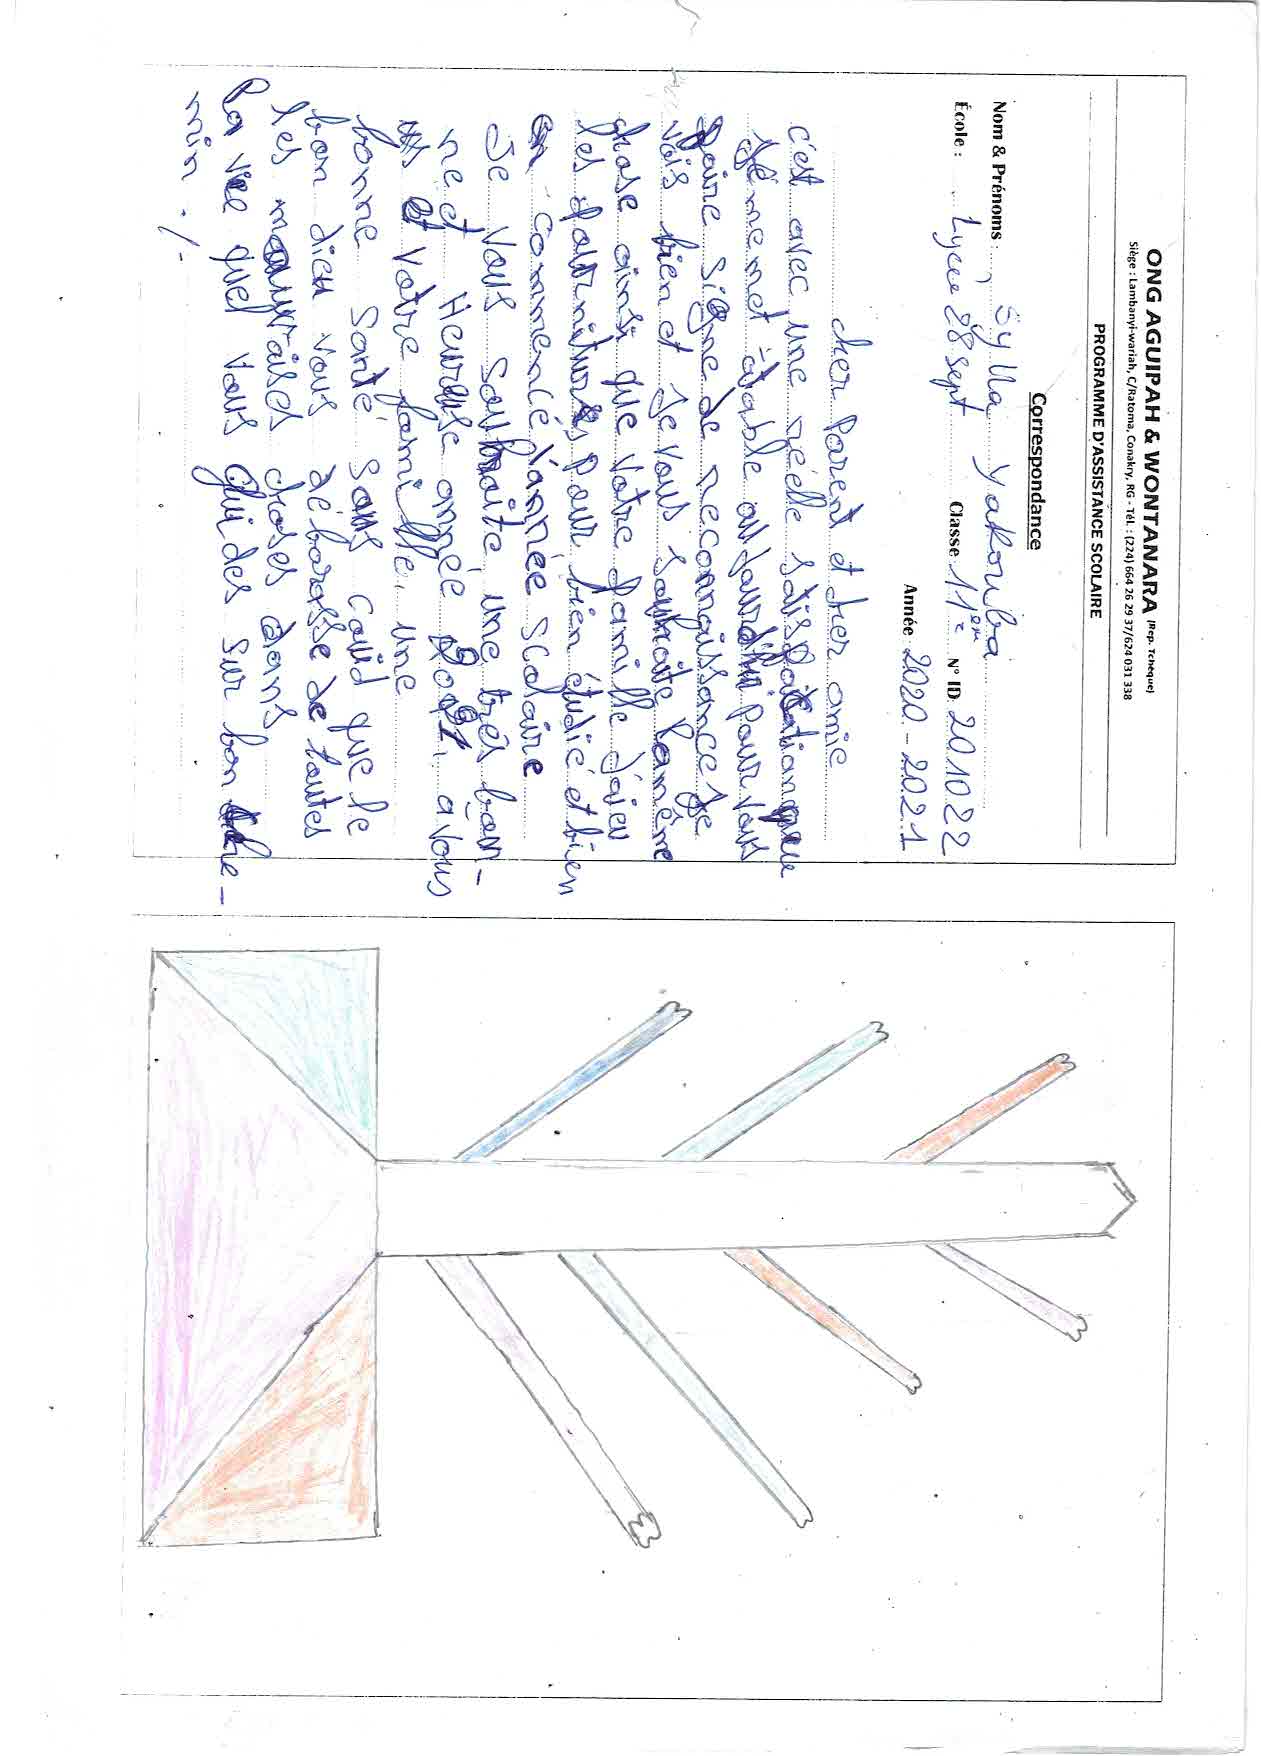 ONG AGUIPAH & WONTANARA (Rep. Tcheque)
Siège : Lambanyi-wariah, C/Ratoma, Conakry, RG - Tél. : (224) 664 26 29 37/624 031 338
PROGRAMME D'ASSISTANCE SCOLAIRE
Correspondance
Année : 2020 - 2021
Nom & Prénoms : Sylla Yakouba
École : Lycée 28 sept Classe 11em N° ID 201022
cher Parent et cher amie
c'est avec une réelle satisfaction que
je me met à table aujourd'hui pour vous
faire signe de reconnaissance Je
vais bien et Je vous souhaite la même
chose ainsi que votre famille j'ai eu
les fournitures pour bien étudié et bien
commencé l'année scolaire
Je vous souhaite une très bon-
ne et Heureuse année 2021 a vous
et votre famille, une
bonne santé sans Covid que le
bon dieu vous débarasse de toutes
les mauvaises choses dans
la vie quel vous guides sur bon che-
min ./-